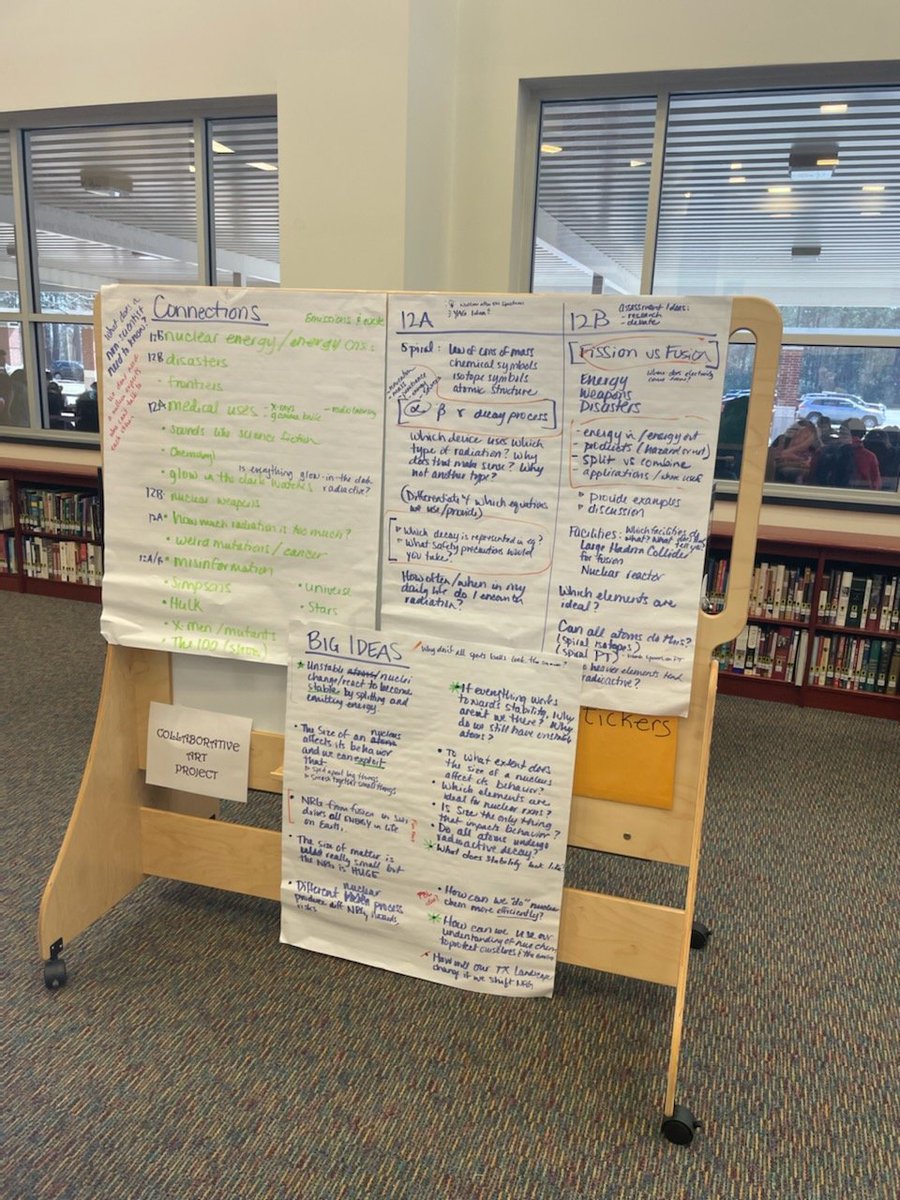 What does a
non-scientist
need to know?
We don't need
a million experts
who can't talk to
each other
Connections
12B nuclear energy/energy
12B disasters
• frontiers
12A medical uses - x-rays
gamma knife
• sounds like science fiction
• chemistry
• glow in the dark watches
is everything glow-in-the-dark
radioactive?
12B nuclear weapons
12A • How much radiation is too much?
• weird mutations/cancer
• misinformation
• Simpsons
• Hulk
• X-men/mutants
• The 100
• Universe
• Stars
12A
Spiral: law of cons of mass
chemical symbols
isotope symbols
atomic structure
α β γ decay process
Which device uses which
type of radiation? Why
does that make sense? Why
not another type?
(Differentiate y which equations
we use/provide)
• Which decay is represented in eq?
• What safety precautions would
you take?
How often/when in my
daily life do I encounter
radiation?
12B
Assessment Ideas:
- research
- debate
Fission vs Fusion
where does electricity
come from?
Energy
Weapons
Disasters
- energy in/energy out
- products (hazard or not)
- split vs combine
- applications/
• provide examples
• discussion
Facilities: Which facilities do
what?
Large Hadron Collider
for fusion
Nuclear reactor
Which elements are
ideal?
Can all atoms do this?
(spiral isotopes)
(spiral PT)
heavier elements
radioactive?
BIG IDEAS
Why don't all
look the same?
* Unstable atoms/nuclei
change/react to become
stable by splitting and
emitting energy
• The size of an atoms nucleus
affects its behavior
and we can exploit
that
» split apart big things
» smash together small things
• NRG from fusion in sun
drives all ENERGY in life
on Earth.
• The size of matter is
really small but
the NRG is HUGE
• Different nuclear process
produce diff NRG, hazards,
risks
* If everything works
towards stability, why
aren't we there? Why
do we still have unstable
atoms?
• To what extent does
the size of a nucleus
affect its behavior?
• Which elements are
ideal for nuclear rxns?
• Is size the only thing
that impacts behavior?
• Do all atoms undergo
radioactive decay?
* What does stability look like?
• How can we "do" nuclear
chem more efficiently?
* How can we use our
understanding of nuc chem
to protect ourselves & the
• How will our TX landscape
change if we shift NRG
COLLABORATIVE
ART
PROJECT